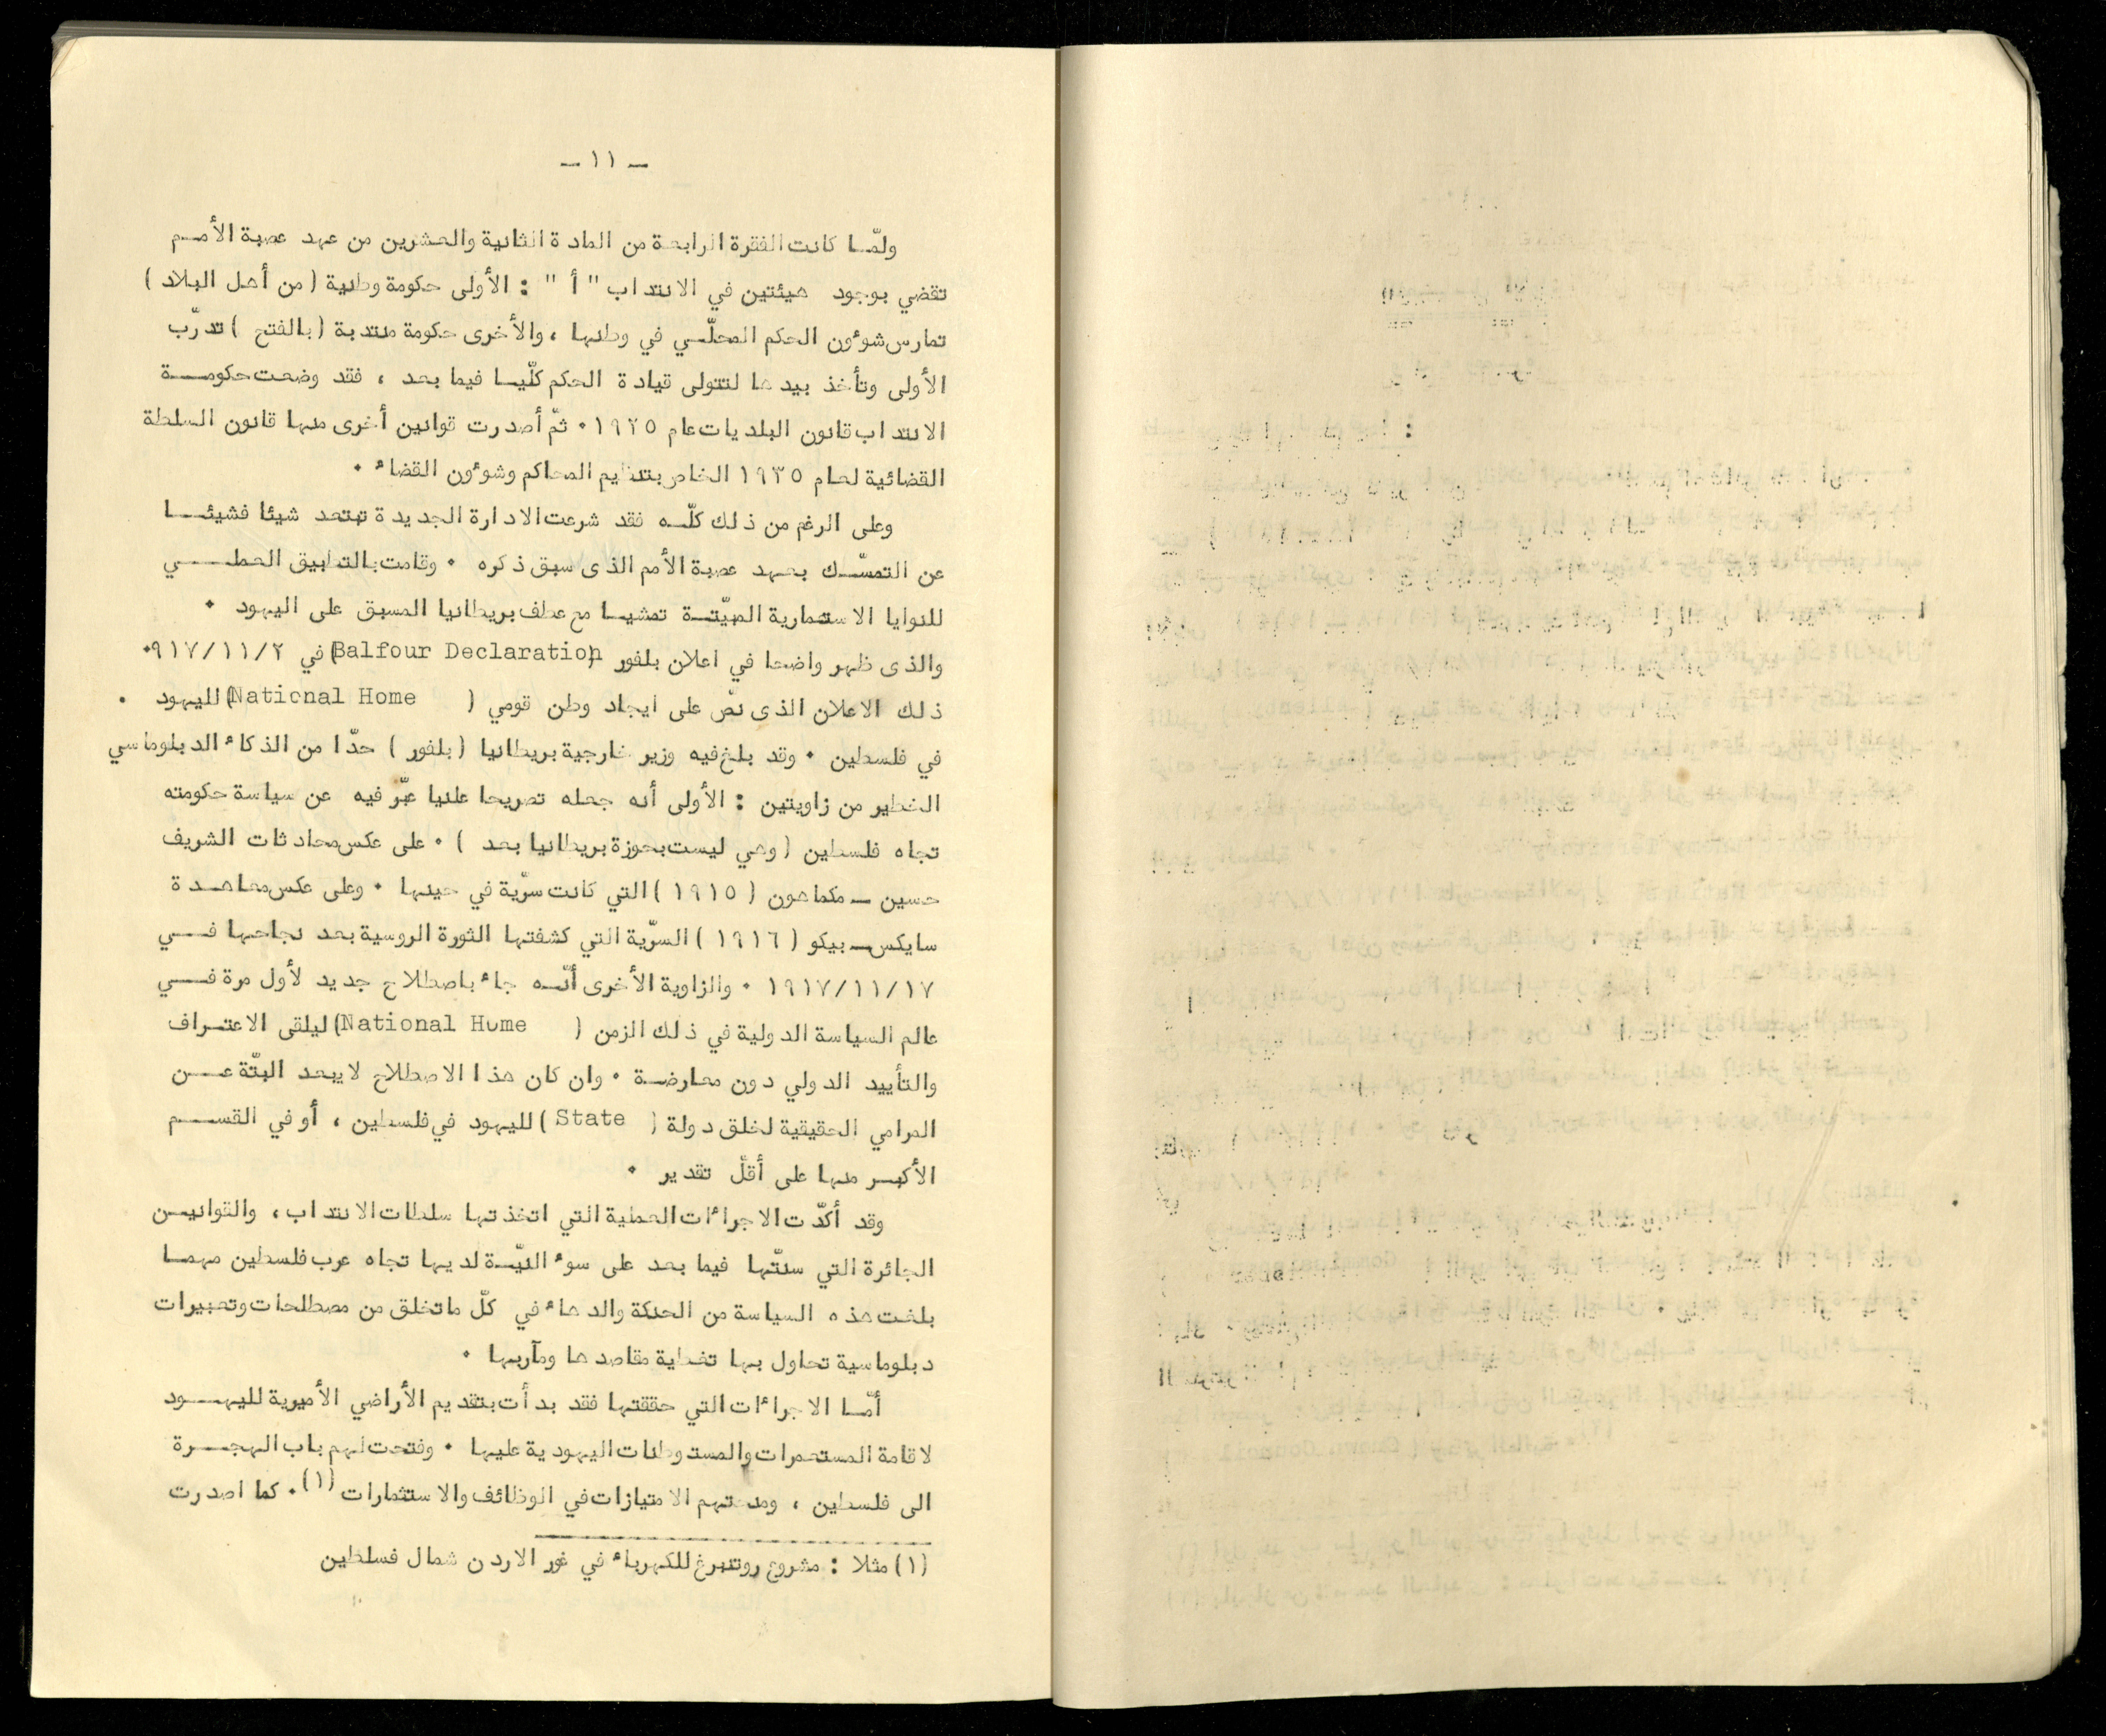 ـ ١١ ـ
ولمّا كانت الفقرة الرابعة من المادة الثانية والعشرين من عهد عصبة الأمم
تقضي بوجود هيئتين في الانتداب " أ " : الأولى حكومة وطنية ( من أهل البلاد )
تمارس شوءون الحكم المحلّي في وطنها ، والأخرى حكومة منتدبة ( بالفتح ) تدرّب
الأولى وتأخذ بيدها لتتولى قيادة الحكم كلّيا فيما بعد ، فقد وضعت حكومة
الانتداب قانون البلديات عام ١٩٢٥ ٠ ثمّ أصدرت قوانين أخرى منها قانون السلطة
القضائية لعام ١٩٣٥ الخاص بتنظيم المحاكم وشوءون القضاء ٠
وعلى الرغم من ذلك كلّه فقد شرعت الادارة الجديدة تبتعد شيئا فشيئا
عن التمسّك بعهد عصبة الأمم الذى سبق ذكره ٠ وقامت بالتطبيق العملي
للنوايا الاستعمارية المبيّتة تمشيا مع عطف بريطانيا المسبق على اليهود ٠
والذى ظهر واضحا في اعلان بلفور (Balfour Declaration) في ٩١٧/١١/٢٠
ذلك الاعلان الذى نصّ على ايجاد وطن قومي ( National Home) لليهود ٠
في فلسطين ٠ وقد بلغ فيه وزير خارجية بريطانيا ( بلفور ) حدّا من الذكاء الدبلوماسي
الخطير من زاويتين : الأولى أنه جعله تصريحا علنيا عبّر فيه عن سياسة حكومته
تجاه فلسطين ( وهي ليست بحوزة بريطانيا بعد ) ٠ على عكس محادثات الشريف
حسين ـ مكماهون ( ١٩١٥ ) التي كانت سرّية في حينها ٠ وعلى عكس معاهدة
سايكس ـ بيكو ( ١٩١٦ ) السرّية التي كشفتها الثورة الروسية بعد نجاحها في
١٩١٧/١١/١٧ ٠ والزاوية الأخرى أنّه جاء باصطلاح جديد لأول مرة في
عالم السياسة الدولية في ذلك الزمن ( National Home) ليلقى الاعتراف
والتأييد الدولي دون معارضة ٠ وان كان هذا الاصطلاح لا يبعد البتّة عن
المرامي الحقيقية لخلق دولة ( State ) لليهود في فلسطين ، أو في القسم
الأكبر منها على أقلّ تقدير ٠
وقد أكّدت الاجراءات العملية التي اتخذتها سلطات الانتداب ، والقوانين
الجائرة التي سنّتها فيما بعد على سوء النيّة لديها تجاه عرب فلسطين مهما
بلغت هذه السياسة من الحنكة والدهاء في كلّ ما تخلق من مصطلحات وتعبيرات
دبلوماسية تحاول بها تغطية مقاصدها ومآربها ٠
أمّا الاجراءات التي حققتها فقد بدأت بتقديم الأراضي الأميرية لليهود
لاقامة المستعمرات والمستوطنات اليهودية عليها ٠ وفتحت لهم باب الهجرة
الى فلسطين ، ومنحتهم الامتيازات في الوظائف والاستثمارات (١) ٠ كما اصدرت
(١) مثلا : مشروع روتنبرغ للكهرباء في غور الاردن شمال فسلطين